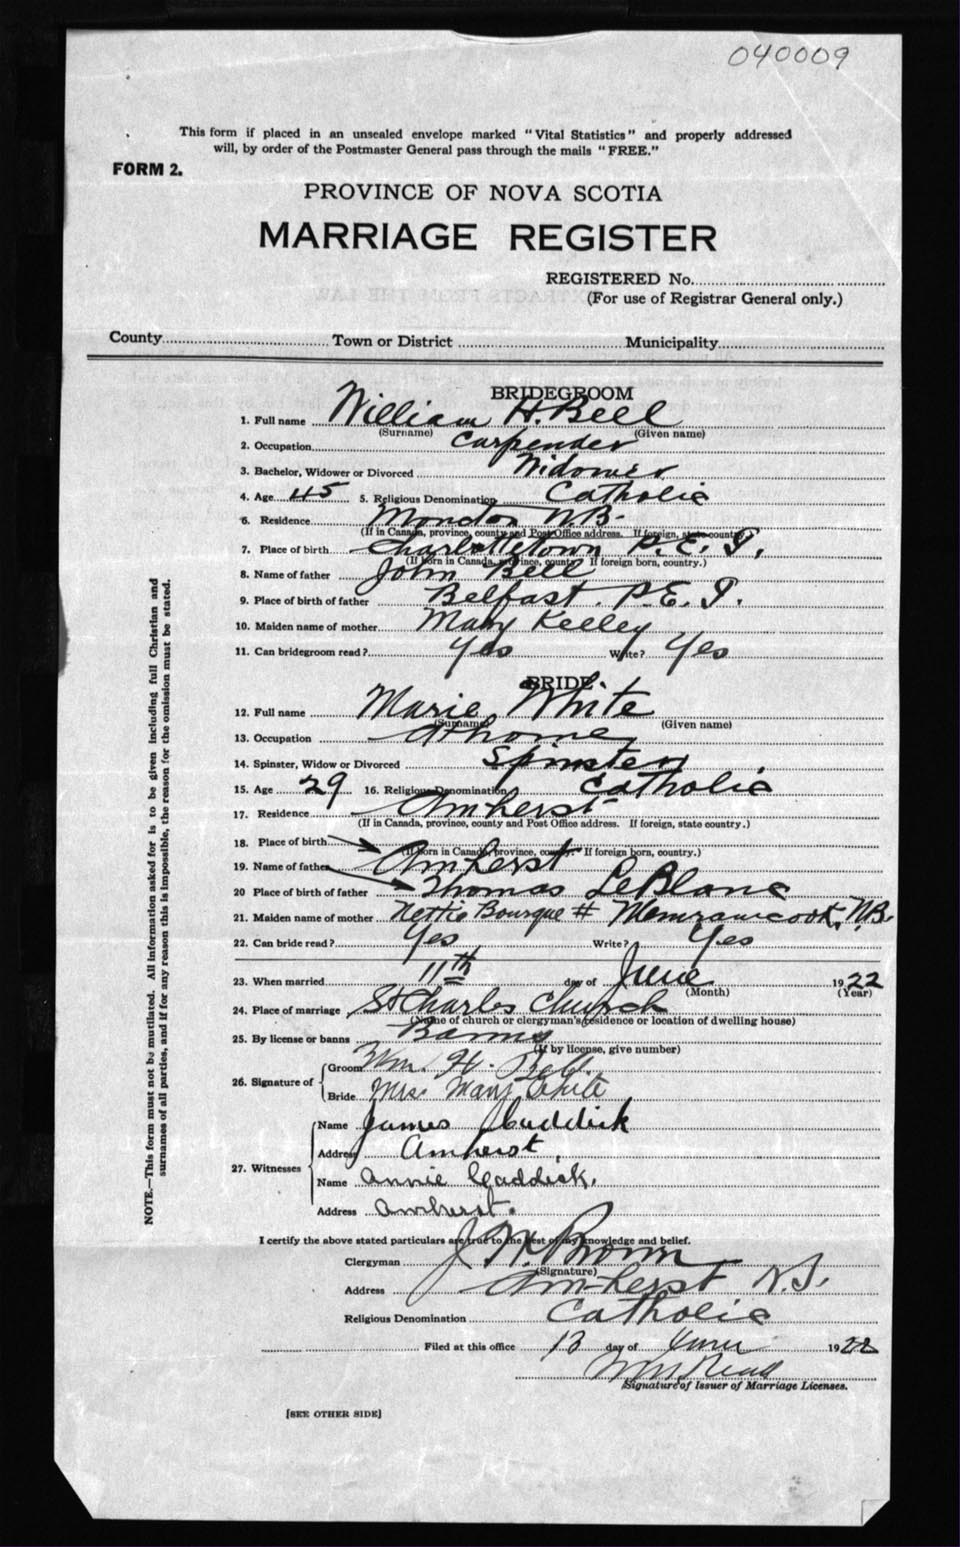 040009
This form if placed in an unsealed envelope marked "Vital Statistics" and properly addressed
will, by order of the Postmaster General pass through the mails "FREE."
FORM 2.
PROVINCE OF NOVA SCOTIA
MARRIAGE REGISTER
REGISTERED No.
(For use of Registrar General only.)
County Town or District Municipality
BRIDEGROOM
1. Full name William H. Bell
(Surname) (Given name)
2. Occupation Carpender
3. Bachelor, Widower or Divorced Widower
4. Age 45 5. Religious Denomination Catholic
6. Residence Moncton N.B.
(If in Canada, province, county and Post Office address. If foreign, state country.)
7. Place of birth Charlottetown P.E.I.
(If born in Canada, province, county. If foreign born, country.)
8. Name of father John Bell
9. Place of birth of father Belfast. P.E.I.
10. Maiden name of mother Mary Kelley
11. Can bridegroom read? Yes Write? Yes
BRIDE
12. Full name Marie White
(Surname) (Given name)
13. Occupation At home
14. Spinster, Widow or Divorced Spinster
15. Age 29 16. Religious Denomination Catholic
17. Residence Amherst
(If in Canada, province, county and Post Office address. If foreign, state country.)
18. Place of birth
(If born in Canada, province, county. If foreign born, country.)
19. Name of father Amherst
20 Place of birth of father Thomas LeBlanc
21. Maiden name of mother Nettie Bourque # Memramcook, N.B.
22. Can bride read? Yes Write? Yes
23. When married 11th day of June 1922
(Month) (Year)
24. Place of marriage St Charles Church
(Name of church or clergyman's residence or location of dwelling house)
25. By license or banns Banns
(If by license, give number)
26. Signature of Groom Wm. H. Bell
Bride Mrs. Mary White
27. Witnesses Name James Caddick
Address Amherst,
Name Annie Caddick.
Address Amherst.
I certify the above stated particulars are true to the best of my knowledge and belief.
Clergyman J. W. Brown
(Signature)
Address Amherst N.S.
Religious Denomination Catholic
Filed at this office 13 day of June 1922
Signature of Issuer of Marriage Licenses.
[SEE OTHER SIDE]
NOTE.—This form must not be mutilated. All information asked for is to be given including full Christian and
surnames of all parties, and if for any reason this is impossible, the reason for the omission must be stated.